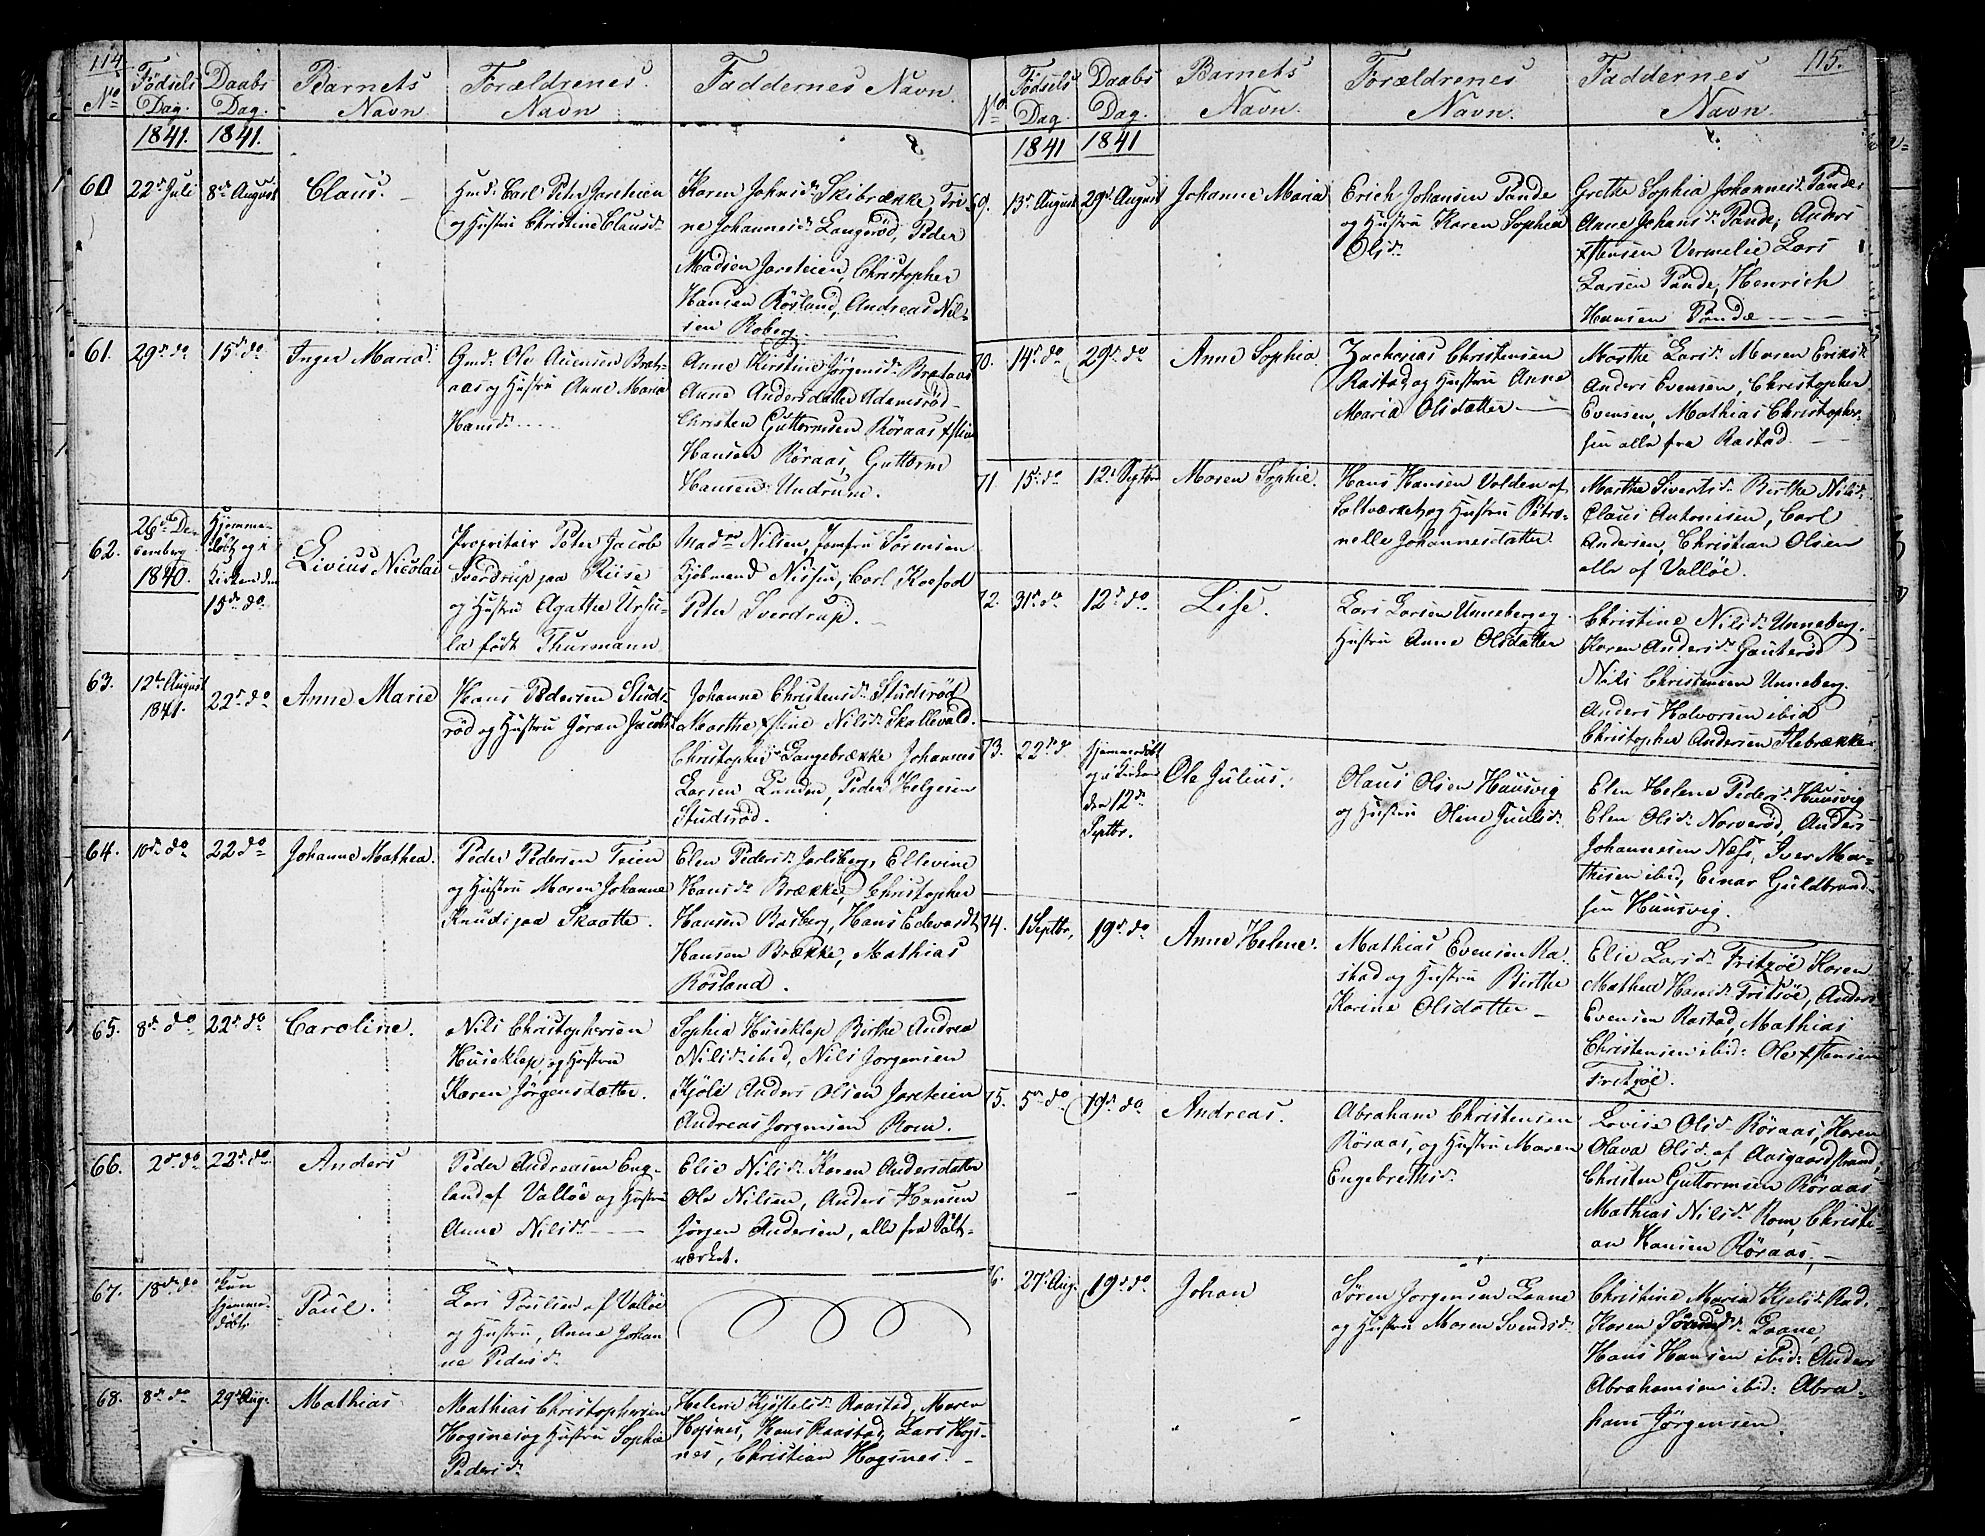 114.
No
Fødsels Dag.
Daabs Dag.
Barnets Navn
Forældrenes Navn
Faddernes Navn.
1841. 1841.
60 22de Juli 8de August Claus.
Gmd. Carl Peter Jareteien
og Hustru Christine Clausdr
Karen Johnsdr Skibrække, Tri-
ne Johannesdr Langerød, Peder
Madsen Jareteien, Christopher
Hansen Røsland, Andreas Nil-
sen Roberg.
61. 29de do 15de do Inger Maria.
Gmd. Ole Auensen Brat-
aas og Hustru Anne Maria
Hansdr
Anne Kirstine Jørgensdr Brataas
Anne Andersdatter Adamsrød
Christen Guttormsen Røraas
Hansen Røraas, Guttorm
Hansen Undrum.
62. 26de De-
cemberg
1840.
Hjemme-
døbt og i
Kirken den
15de do
Livius Nicolai
Propritair Peter Jacob
Sverdrup paa Riise
og Hustru Agathe Ursu-
la født Thurmann
Madme Nilsen, Jomfru Sørensen
Kjøbmand Nissen, Carl Koefod
Peter Sverdrup.
63. 12te August
1841. 22de do Anne Marie
Hans Pedersen Studs-
rød og Hustru Gøran Jacobsdr
Johanne Christensdr Studsrød
Marthe Nilsdr Skallevald.
Christopher Langebrække Johannes
Larsen Lunden, Peder Helgesen
Studsrød.
64. 10de do 22 do Johanne Mathea.
Peder Pedersen Teien
og Hustru Maren Johanne
Knuds paa Skaatte.
Elen Pedersdr Jarlsberg, Ellevine
Hansdr Brække, Christopher
Hansen Basberg, Hans Edevardt
Hansen Brække, Mathias
Røsland.
65. 8de do 22de do Caroline.
Nils Christophersen
Huseklep, og Hustru
Karen Jørgensdatter.
Sophia Huseklep Birthe Andrea
Nilsdr ibid, Nils Jørgensen
Kjøle Anders Olsen Jareteien
Andreas Jørgensen Rom.
66. 2de do 22de do Anders
Peder Andreasen Eng-
land af Valløe og Hustru
Anne Nilsdr
Elie Nilsdr Karen Andersdatter
Ole Nilsen, Anders Hansen
Jørgen Andersen, alle fra Salt-
værket.
67. 18de do kun
hjemme-
døbt. Paul.
Lars Poulsen af Valløe
og Hustru, Anne Johan-
ne Pedersdr
68. 8de do 29de Aug. Mathias
Mathias Christophersen
Hogsnes og Hustru Sophie
Pedersdr
Helene Kjøstelsdr Raastad, Maren
Hogsnes, Hans Raastad, Lars Hogs-
nes, Christian Hogsnes.
115.
No
Fødsels Dag.
Daabs Dag.
Barnets Navn.
Forældrenes Navn.
Faddernes Navn.
1841 1841
69. 13de August 29de August Johanne Maria
Erich Johansen Tande
og Hustru Karen Sophia
Olsdr
Grethe Sophia Johannesdr Tande
Anne Johansdr Tande, Anders
Vermelie Lars
Larsen Tande, Henrich
Hansen Tande
70. 14de do 29de do Anne Sophia.
Zacharias Christensen
Rastad og Hustru Anne
Maria Olsdatter
Marthe Larsdr Maren Eriksdr
Anders Evensen, Christopher
Evensen, Mathias Christopher-
sen alle fra Rastad.
71 15de do 12te Septbr Maren Sophie.
Hans Hansen Volden af
Saltværket og Hustru Petro-
nelle Johannesdatter.
Marthe Sivertsdr Birthe Nilsdr
Claus Antonisen, Carl
Andersen, Christian Olsen
alle af Valløe.
72. 31de do 12de do Lise.
Lars Larsen Unneberg og
Hustru Anne Olsdatter
Christine Nilsdr Unneberg.
Karen Andersdr Gauterød
Nils Christensen Unneberg.
Anders Halvorsen ibid
Christopher Andersen Ilebrække
73. 22de do Hjemmedøbt
og i Kirken
den 12te
Septbr. Ole Julius.
Olaus Olsen Huusvig
og Hustru Olene Juulsdr
Elen Helene Pedersdr Huusvig
Elen Olsdr Norverød, Anders
Johannesen Næss, Iver Mar-
thisen ibid, Einar Guldbrand-
sen Huusvig.
74. 1 Septbr. 19de do Anne Helene.
Mathias Evensen Ra-
stad og Hustru Birthe
Karine Olsdatter
Elie Larsdr Fritzøe Karen
Mathea Hansdr Fritsøe, Anders
Evensen Rastad, Mathias
Christensen ibid: Ole
Fritzøe.
75. 5de do 19de do Andreas.
Abraham Christensen
Røraas, og Hustru Maren
Engebrethsdr
Lovise Olsdr Røraas, Karen
Olava Olsdr af Aasgaardstrand,
Christen Guttormsen Røraas
Mathias Nilsdr Rom, Christi-
an Hansen Røraas,
76. 27de Aug. 19de do Johan
Søren Jørgensen Laane
og Hustru Maren Svendsdr
Christine Maria Kjelsdr Rad.
Karen Laane,
Hans Hansen ibid: Anders
Abrahamsen ibid: Abra-
ham Jørgensen.